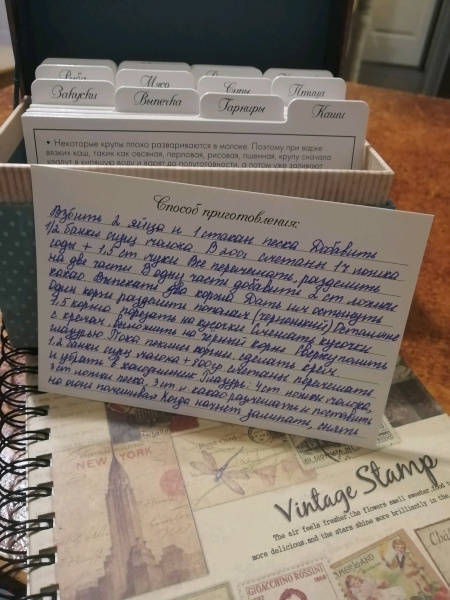 Рыба
Мясо
Супы
Птица
Закуски
Выпечка
Гарниры
Каши
• Некоторые крупы плохо развариваются в молоке. Поэтому при варке
вязких каш, таких как овсяная, перловая, рисовая, пшенная, крупу сначала
кладут в кипящую воду и варят до полуготовности, а потом уже заливают
Способ приготовления:
Взбить 2 яйца и 1 стакан песка Добавить
1/2 банки сгущ молока В 200г сметаны 1 ч ложка
соды + 1,5 ст муки Все перемешать, разделить
на две части В одну часть добавить 2 ст ложки
какао Выпекать два коржа Дать им остынуть
Один корж разделить пополам (черненький) Остальные
1,5 коржа порезать на кусочки Смешать кусочки
с кремом. Выложить на черный корж Сверху полить
глазурью Пока пекли коржи, сделать крем
1/2 банки сгущ молока + 600гр сметаны перемешать
и убрать в холодильник Глазурь: 4 ст ложки молока,
3 ст ложки песка, 3 ст л какао размешать и поставить
на огонь помешивая Когда начнет закипать, снять
NEW YORK
Vintage Stamp
The air feels fresher, the flowers smell sweeter, food
more delicious, and the stars shine more brilliantly in the
GIOACCHINO ROSSINI
Châ